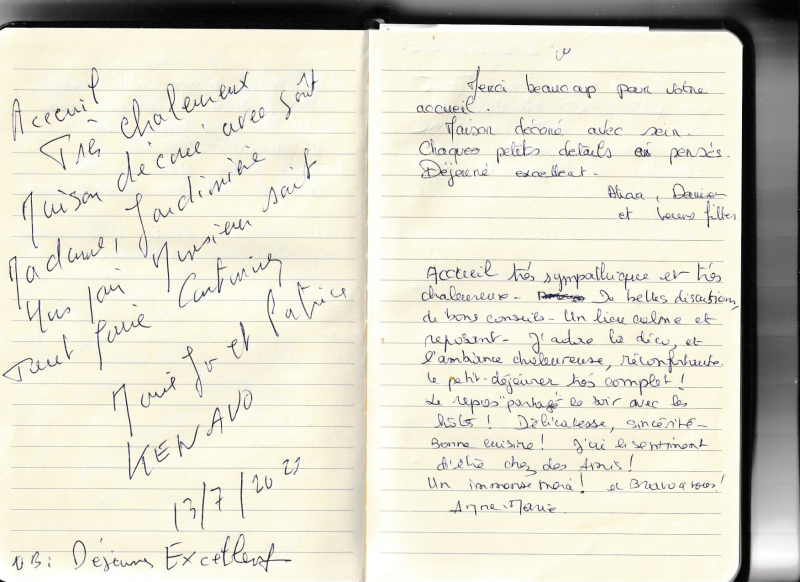 Acceuil
Très chaleureux
Maison décoré avec goût
Madame, Jardinière
Hors pair Monsieur sait
Tout faire Continuez
Marie Jo et Patrice
KENAVO
13/7/20
NB: Déjeuner Excellent
Merci beaucoup pour votre
accueil.
Maison décoré avec soin.
Chaques petits détails pensés.
Déjeuné excellent.
Damien
et leurs filles
Accueil très sympathique et très
chaleureux - De belles discutions,
de bons conseils - Un lieu calme et
reposant - J'adore la déco, et
l'ambiance chaleureuse, réconfortante.
Le petit-déjeuner très complet !
Le repas "partagé le soir avec les
hôtes ! Délicatesse, sincérité -
Bonne cuisine ! J'ai le sentiment
d'être chez des Amis !
Un immense merci ! et Bravo à vous !
Anne-Marie